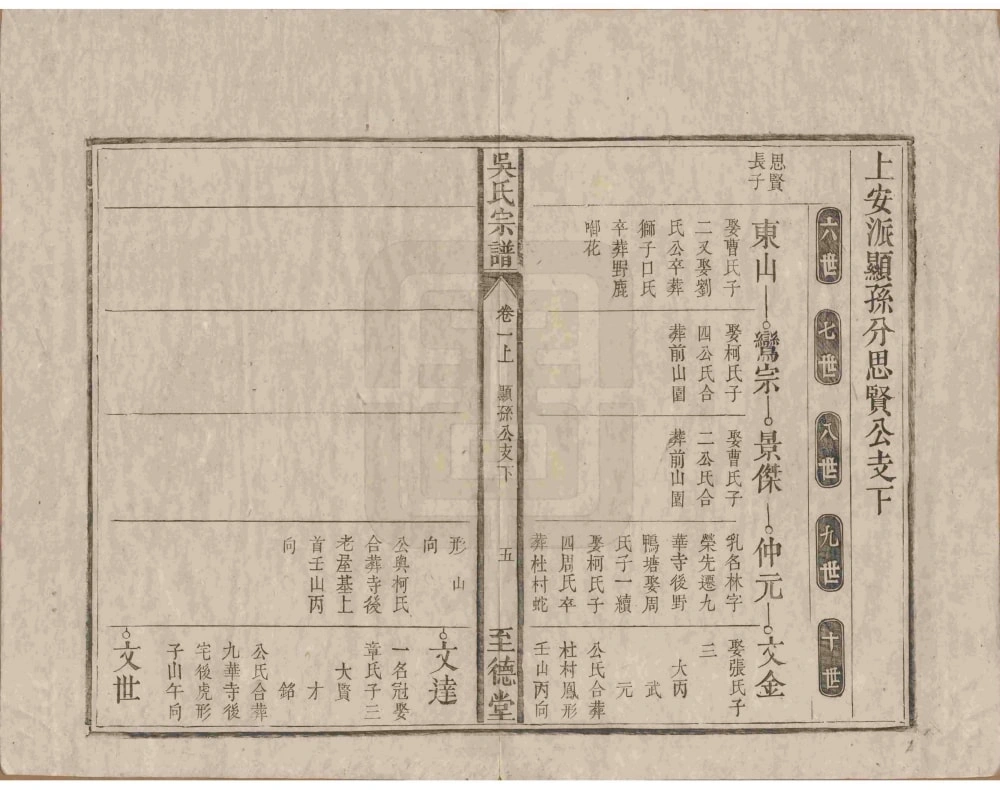 上安派顯孫分思賢公支下
六世
七世
八世
九世
十世
思賢
長子
東山
娶曹氏子
二又娶劉
氏公卒葬
獅子口氏
卒葬野鹿
啣花
鸞宗
娶柯氏子
四公氏合
葬前山園
景傑
娶曹氏子
二公氏合
葬前山園
仲元
乳名林字
榮先遷九
華寺後野
鴨塘娶周
氏子一續
娶柯氏子
四周氏卒
葬杜村蛇
形山
向
公與柯氏
合葬寺後
老屋基上
首壬山丙
向
文金
娶張氏子
三
大丙
武
元
公氏合葬
杜村鳳形
壬山丙向
吳氏宗譜
卷一上
顯孫公支下
五
至德堂
文達
一名冠娶
章氏子三
大賢
才
銘
公氏合葬
九華寺後
宅後虎形
子山午向
文世